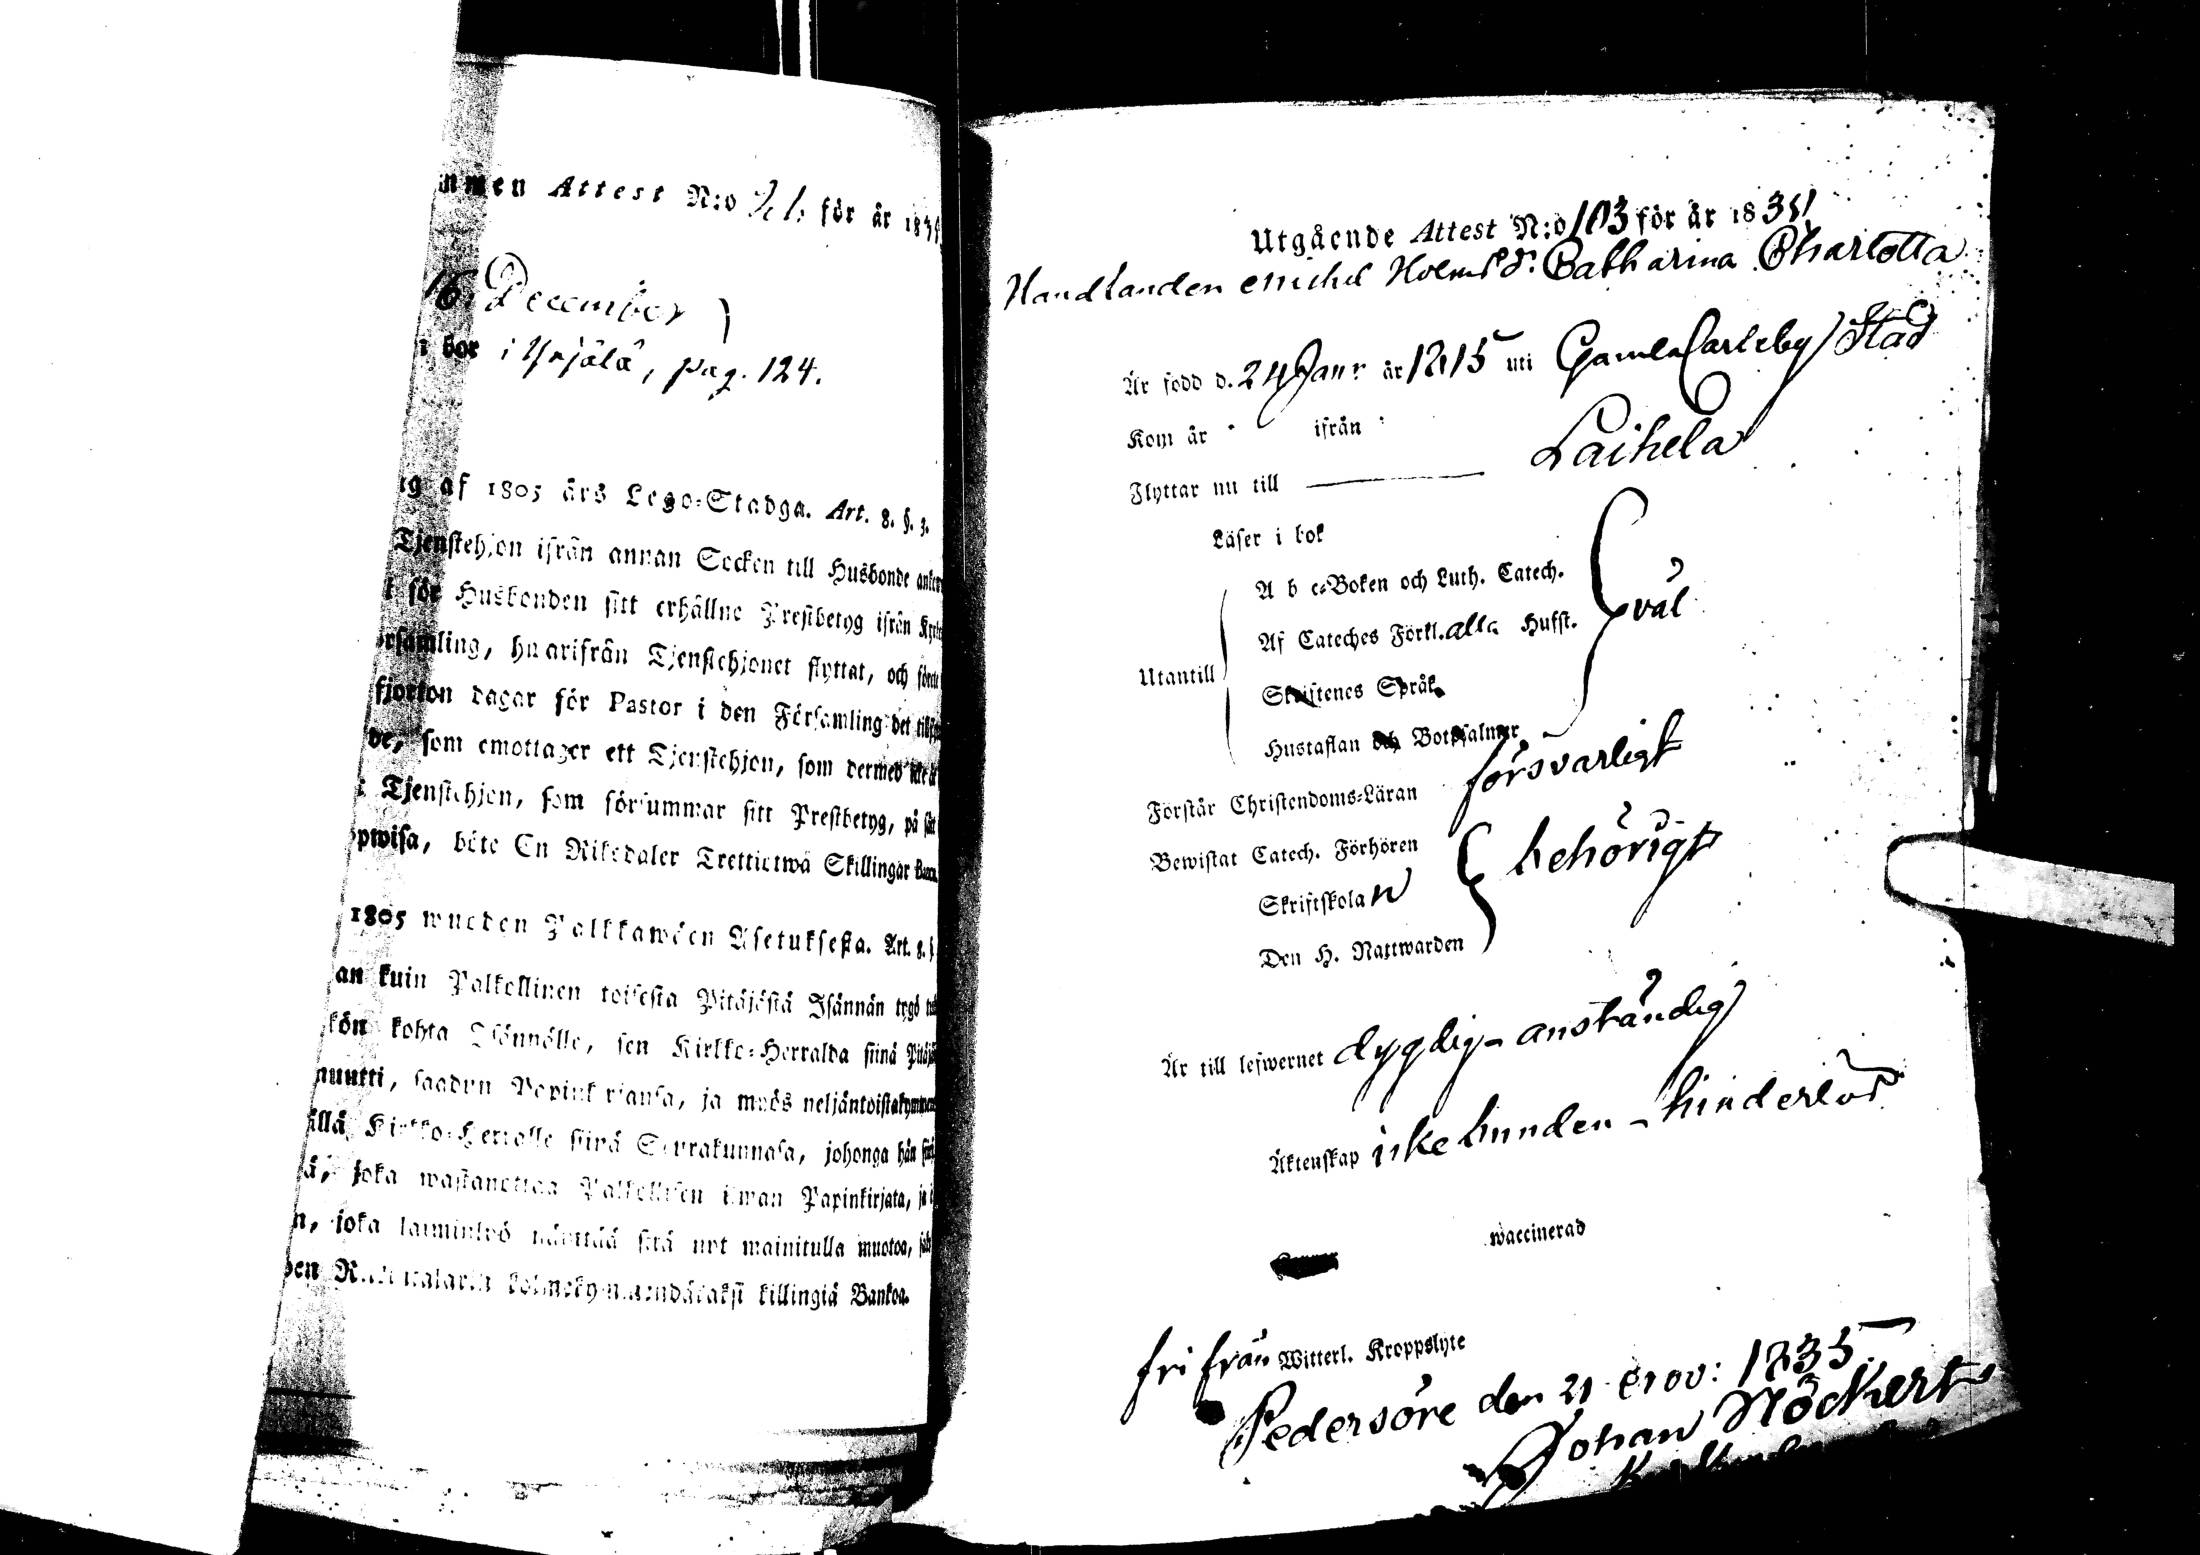 nmen Attest N:o för år 183
16 December
bor i Yrjälä, pag. 124.
af 1805 års Lego-Stadga. Art. 8. §. 3.
Tjenstehjon ifrån annan Socken till Husbonde
för Husbonden sitt erhållne Prestbetyg ifrån
hwarifrån Tjenstehjonet flyttat, och
fjorton dagar för Pastor i den Församling det
de, som emottager ett Tjenstehjon, som dermed
Tjenstehjon, som försummar sitt Prestbetyg, på sätt
böte En Riksdaler Trettietwå Skillingar Banco.
1805 wuoden Palkkawäen Asetuksesta. Art. 8. §
kuin Palkollinen toisesta Pitäjästä Isännän tygö
kohta Isännälle, sen Kirkko-Herralda siinä
saadun Papinkirjansa, ja myös
Kirkko-Herralle siinä Seurakunnasa, johonga hän
joka wastanottaa Palkollisen ilman Papinkirjata, ja
n, joka laiminlyö näyttää sitä nyt mainitulla muotoa,
killingiä Bankoa.
Utgående Attest N:o 103 för år 1835
Handlanden Michel Holms Dr. Catharina Charlotta
Är född d. 24 Janr. år 1815 uti GamlaCarleby Stad
Kom år ifrån
Flyttar nu till Laihela
Läser i bok
A b c-Boken och Luth. Catech.
Af Cateches Förkl. alla Hufst. väl
Utantill
Skriftenes Språk
Hustaflan och Botpsalmer
Förstår Christendoms-Läran försvarligt
Bewistat Catech. Förhören
Skriftskolan behörigt
Den H. Nattwarden
Är till lefwernet dygdig - anständig
Äktenskap icke bunden - hinderlös
waccinerad
fri från Witterl. Kroppslyte
Pedersöre den 21 Nov: 1835.
Johan Nöckert